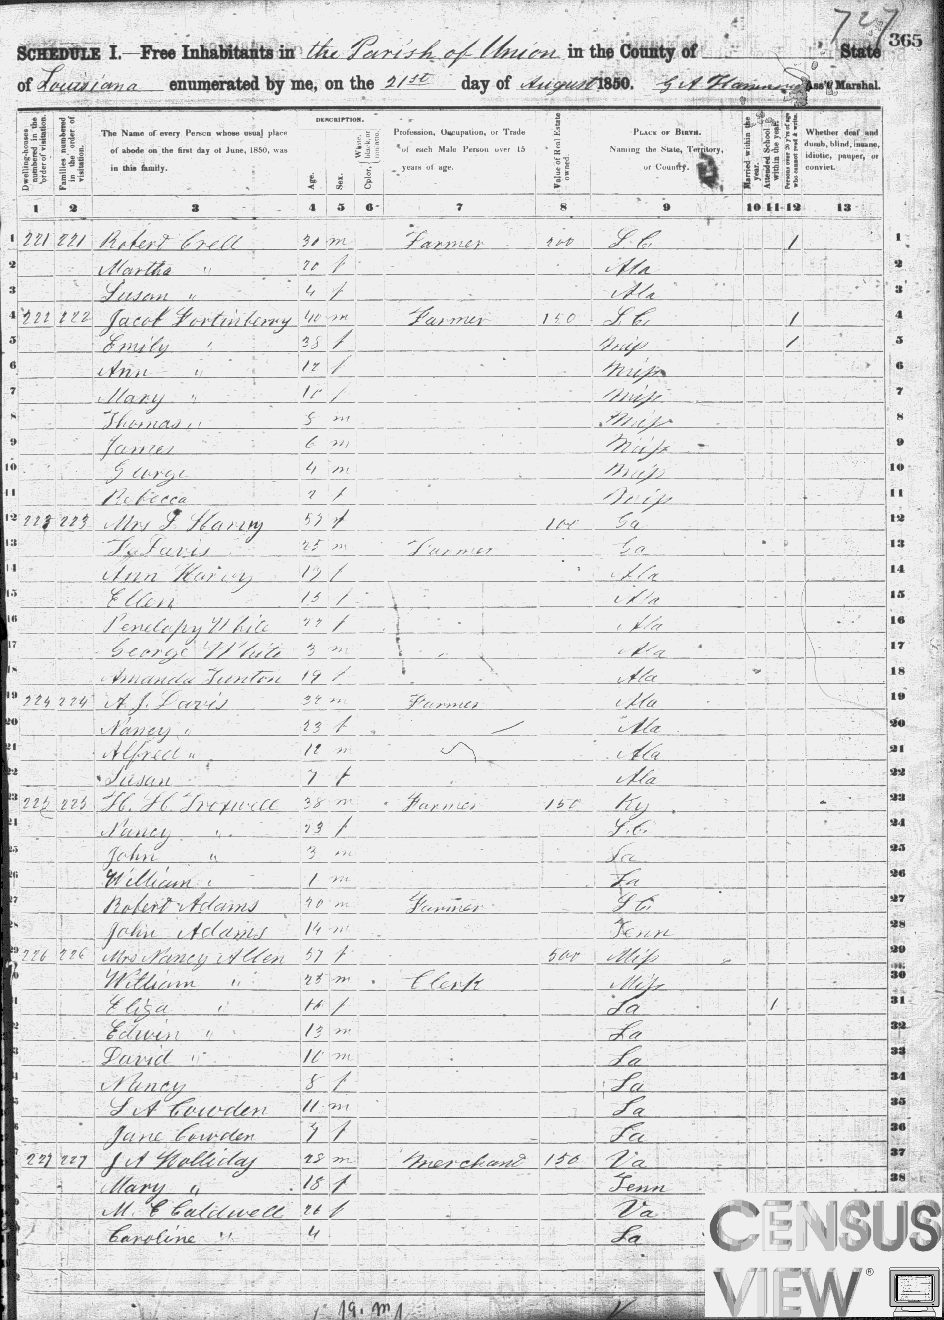 727
365
SCHEDULE I.—Free Inhabitants in the Parish of Union in the County of State
of Louisiana enumerated by me, on the 21st day of August 1850. G A Ass't Marshal.
Dwelling-houses numbered in the order of visitation.
Families numbered in the order of visitation.
The Name of every Person whose usual place of abode on the first day of June, 1850, was in this family.
DESCRIPTION.
Age.
Sex.
Color, White, black, or mulatto.
Profession, Occupation, or Trade of each Male Person over 15 years of age.
Value of Real Estate owned.
PLACE OF BIRTH. Naming the State, Territory, or Country.
Married within the year.
Attended School within the year.
Persons over 20 y'rs of age who cannot read & write.
Whether deaf and dumb, blind, insane, idiotic, pauper, or convict.
1 2 3 4 5 6 7 8 9 10 11 12 13
1 221 221 Robert Crell 30 m Farmer 200 S.C. 1 1
2 Martha " 20 f Ala 2
3 Susan " 4 f Ala 3
4 222 222 Jacob Fortinberry 40 m Farmer 150 S.C. 1 4
5 Emily " 38 f Miss 1 5
6 Ann " 12 f Miss 6
7 Mary " 10 f Miss 7
8 Thomas " m Miss 8
9 James 6 m Miss 9
10 George 4 m Miss 10
11 Rebecca 2 f Miss 11
12 223 223 Mrs Harvy 57 f 100 Ga 12
13 Davis 25 m Farmer Ga 13
14 Ann Harvy f Ala 14
15 Ellen 15 f Ala 15
16 Penelopy White 22 f Ala 16
17 George White 3 m " Ala 17
18 Amanda Tunton 19 f Ala 18
19 224 224 A. J. Davis 32 m Farmer Ala 19
20 Nancy " 23 f Ala 20
21 Alfred " 12 m Ala 21
22 Susan 7 f Ala 22
23 225 225 H. H. Troxwell 38 m Farmer 150 Ky 23
24 Nancy " 23 f S.C. 24
25 John " 3 m La 25
26 William " 1 m La 26
27 Robert Adams 20 m Farmer S C 27
28 John Adams 14 m Tenn 28
29 226 226 Mrs Nancy Allen 57 f 500 Miss 29
30 William " 23 m Clerk Miss 30
31 Eliza " 16 f La 1 31
Edwin " 13 m La 32
David " 10 m La 33
Nancy 8 f La 34
S A Cowden 11 m La 35
Jane Cowden 7 f La 36
227 227 J A Holliday 28 m Merchand 150 Va 37
Mary " 18 f Tenn 38
M. C Caldwell 26 f Va
Caroline " 4 La
CENSUS
VIEW®
19. m